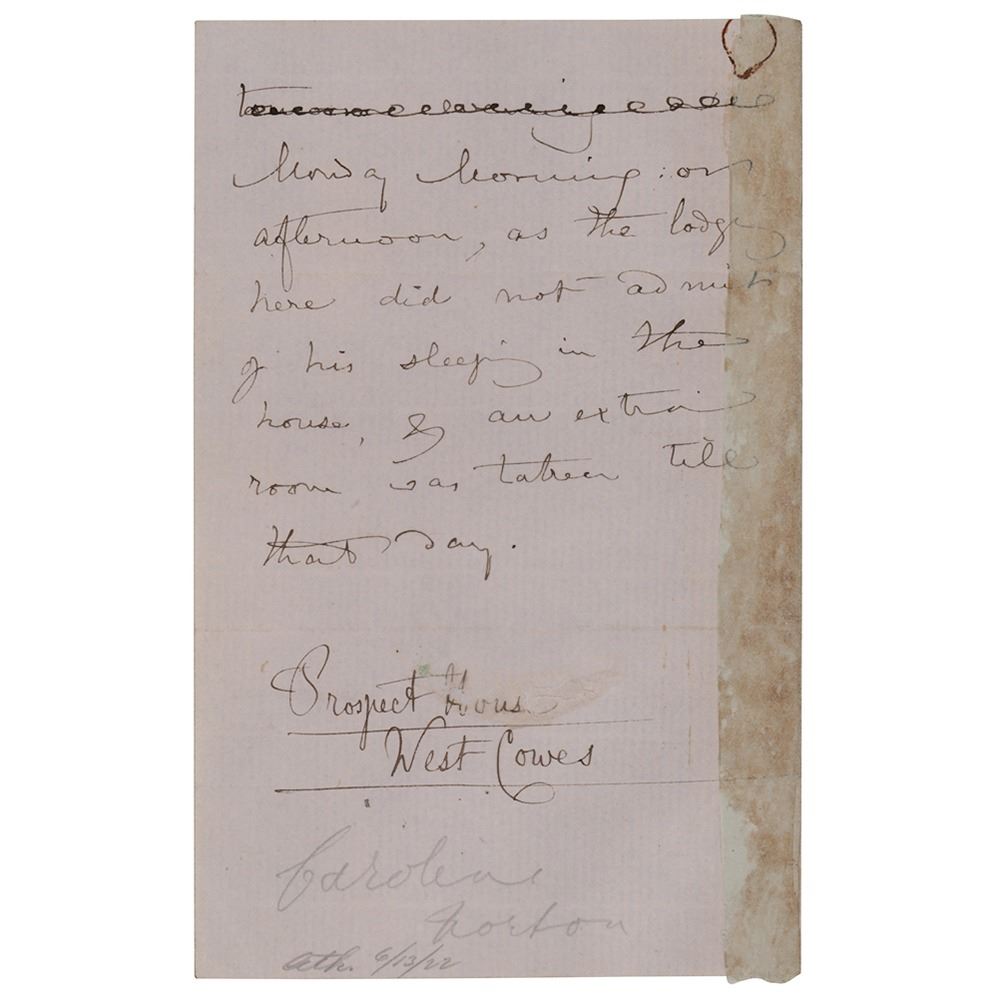 Monday Morning: or
afternoon, as the lodge
here did not admit
of his sleeping in the
house, & an extra
room was taken till
that day.
Prospect House
West Cowes
Caroline
Norton
6/13/22